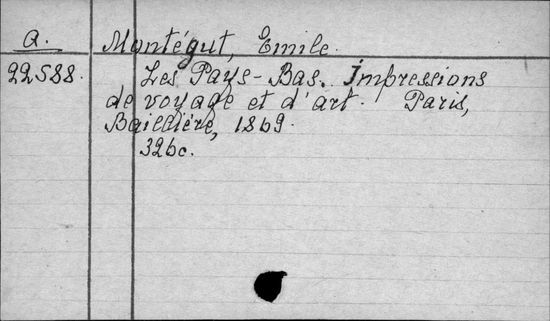 A. Montégut, Emile.
22588. Les Pays-Bas. Impressions
de voyage et d'art. Paris,
Baillière, 1869.
326c.